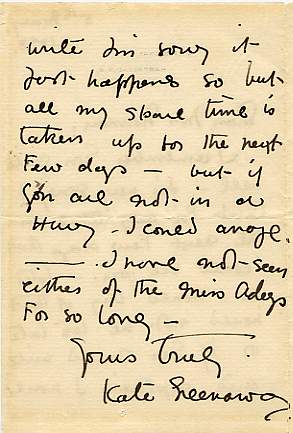 write I'm sorry it
just happens so but
all my spare time is
taken up for the next
Few days — but if
you are not in a
Hurry - I could arrange.
—— . I have not seen
either of the Miss Adeys
For so long —
Yours truly.
Kate Greenaway